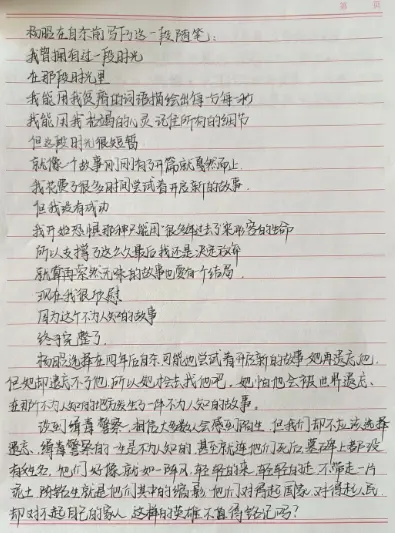 第 页
杨眠在自杀前写下这一段随笔:
我曾拥有过一段时光
在那段时光里
我能用我贫瘠的词语描绘出每一分每一秒
我能用我枯竭的心灵记住所有的细节
但这段时光很短暂
就像一个故事刚刚有了开篇就戛然而止
我花费了很多时间尝试着开启新的故事
但我没有成功
我开始恐惧那种只能用"很多年过去了"来形容的生命
所以支撑了这么久最后我还是决定放弃
就算再索然无味的故事也要有个结局
现在我很欣慰
因为这个不为人知的故事
终于完整了
杨眠选择在四年后自杀,可能他尝试着开启新的故事,她再遗忘他,
但她却遗忘不了他,所以她检去找他吧,她怕他会被世界遗忘,
在那个不为人知的地方发生了一件不为人知的故事。
谈到缉毒警察,相信大多数人会感到陌生,但我们却不应该选择
遗忘,缉毒警察的一生是不为人知的,甚至就连他们死后,墓碑上都没
有姓名,他们好像就如一阵风,轻轻的来,轻轻的走,不带走一片
尘土,陈铭生就是他们其中的缩影,他们对得起国家,对得起人民,
却对不起自己的家人,这样的英雄不值得铭记吗?